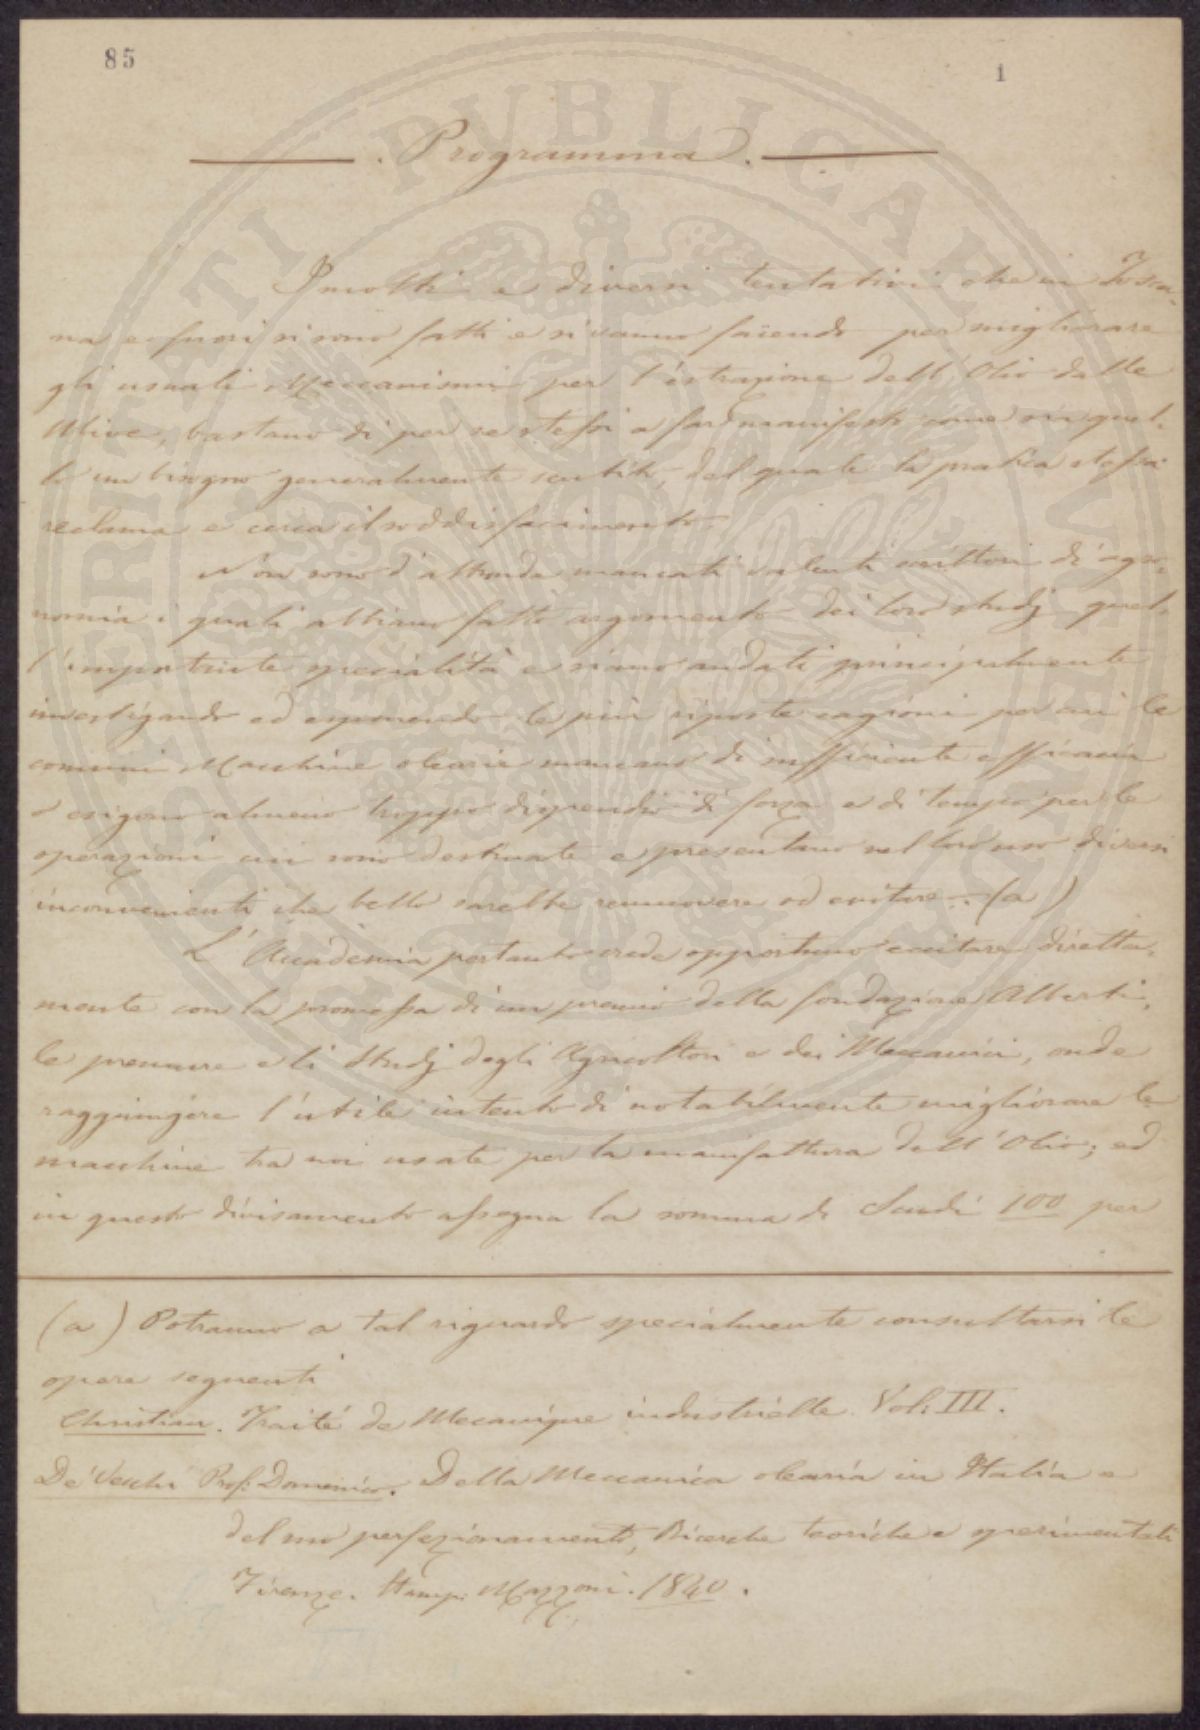 85
1
Programma.
I molti e diversi tentativi che in Tosca-
na e fuori si sono fatti e si vanno facendo per migliorare
gli usuali Meccanismi per l'estrazione dell'Olio dalle
Ulive, bastano di per se stessi a far manifesto come sia quel-
lo un bisogno generalmente sentito, del quale la pratica stessa
reclama e cerca il soddisfacimento.
Non sono d'altronde mancati valenti scrittori di agro-
nomia i quali abbiano fatto argomento dei loro studj quel-
l'importante specialità e siano andati principalmente
investigando ed esponendo le più riposte cagioni per cui le
comuni Macchine olearie mancano di sufficiente efficacia
o esigono almeno troppo dispendio di forza e di tempo per le
operazioni cui sono destinate e presentano nel loro uso diversi
inconvenienti che bello sarebbe remuovere od evitare. (a)
L'Accademia pertanto crede opportuno eccitare diretta-
mente con la promossa di un premio della fondazione Alberti,
le premure e li Studj degli Agricoltori e dei Meccanici, onde
raggiungere l'utile intento di notabilmente migliorare le
macchine tra noi usate per la manifattura dell'Olio; ed
in questo divisamento assegna la somma di Scudi 100 per
(a) Potranno a tal riguardo specialmente consultarsi le
opere seguenti
Christian. Traité de Mecanique industrielle Vol: III.
De' Vecchi Prof: Domenico. Della Meccanica olearia in Italia e
del suo perfezionamento, Ricerche teoriche e sperimentali
Firenze. Stamp: Mazzoni. 1840.
POSTERITATI PVBLICAE